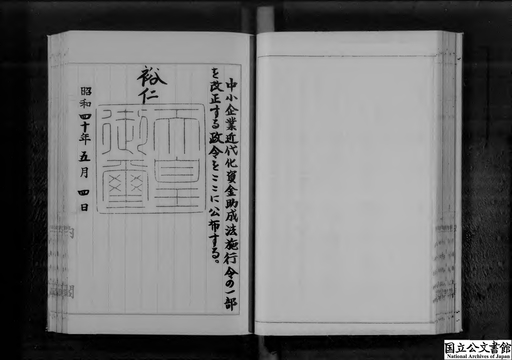 中小企業近代化資金助成法施行令の一部
を改正する政令をここに公布する。
裕仁
天皇
御璽
昭和四十年五月四日
国立公文書館
National Archives of Japan